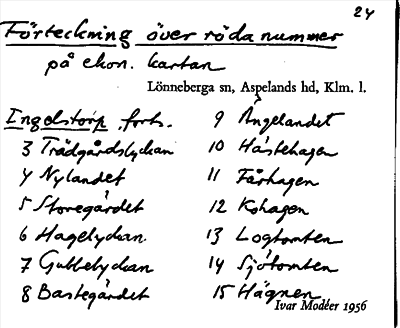 24
Förteckning över röda nummer
på ekon. kartan
Lönneberga sn, Aspelands hd, Klm. l.
Ingelstorp forts.
3 Trädgårdslyckan
4 Nylandet
5 Storegärdet
6 Hagelyckan.
7 Gubbelyckan
8 Bastegärdet
9 Ängelandet
10 Hästehagen
11 Fårhagen
12 Kohagen
13 Logtomten
14 Sjötomten
15 Hägnen
Ivar Modéer 1956